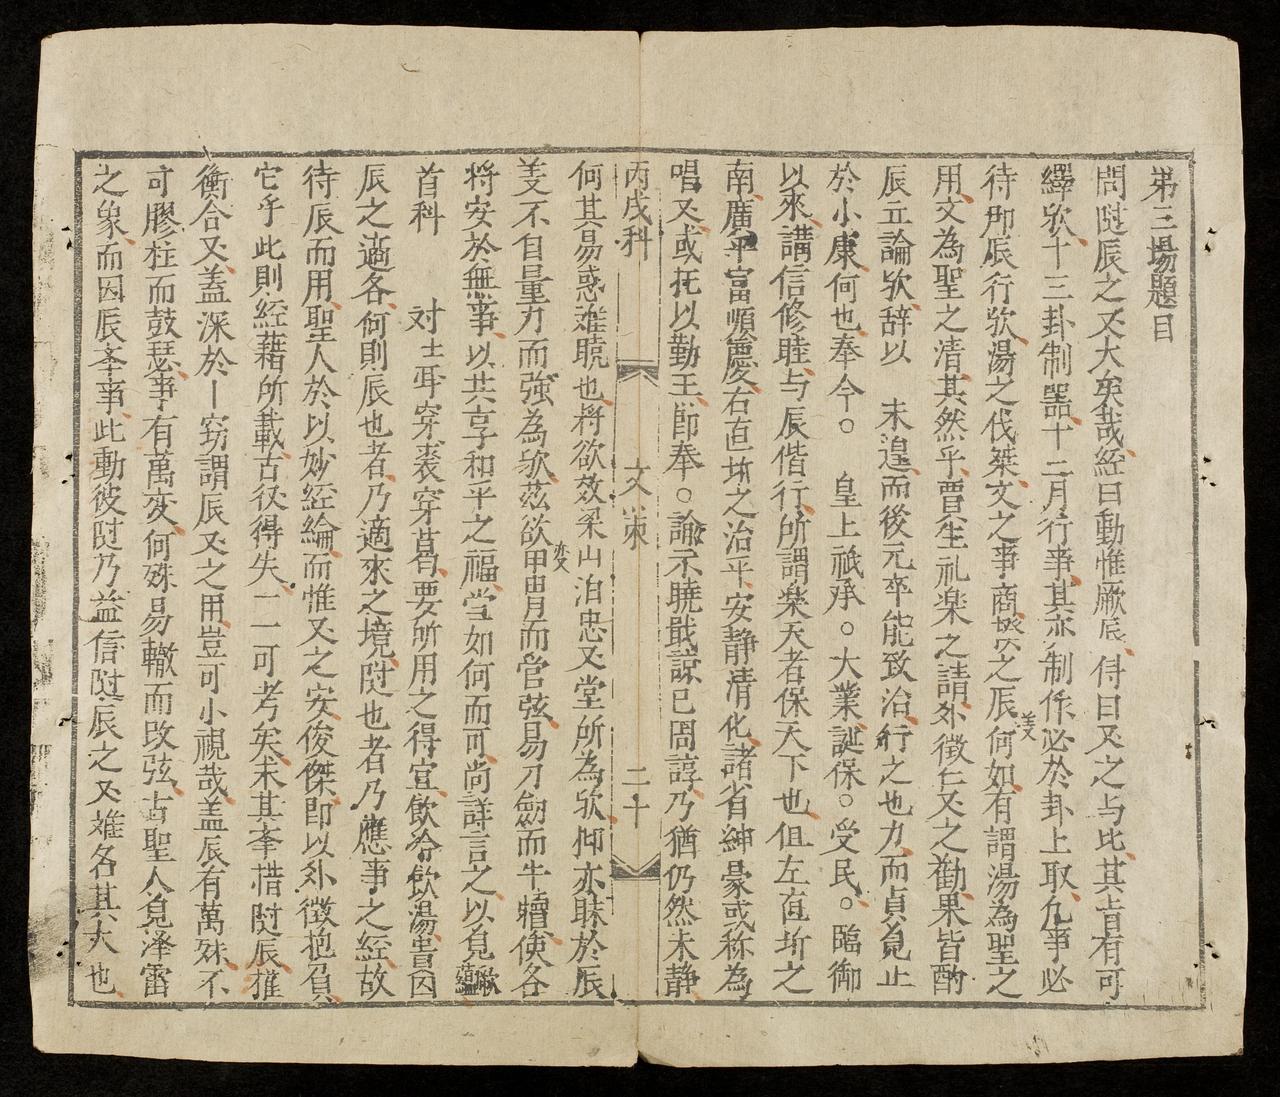 苐三場題目
問隨辰之义大矣哉経曰動惟厥辰侍曰义之与比其旨有可
繹欤十三卦制噐十二月行事其亦制作必於卦上取凢事必
待那辰行欤湯之伐桀文之事商揆之辰何如有謂湯為聖之
用文為聖之清其然乎賈生礼楽之請外徵仁义之勸果皆酌
辰立論欤辞以 未遑而後元卒能致治行之也力而貞覌止
於小康何也奉今。 皇上祇承。大業誕保。受民。臨御
以來講信修睦与辰偕行所謂楽天者保天下也伹左直圻之
南廣平富順慶右直圻之治平安静清化諸省紳豪或称為
唱义或托以勤王節奉。諭示曉戢諒已周諄乃猶仍然未静
丙戌科 文策 二十
何其易惑难曉也将欲效梁山泊忠义堂所為欤仰亦昧於辰
义不自量力而強為欤茲欲甲胄而管弦易刀劔而牛犢使各
将安於無事以共享和平之福当如何而可尚詳言之以覌
首科 对士耳穿裘穿葛要所用之得宜飲冷飲湯書因
辰之適各何則辰也者乃適來之境隨也者乃應事之経故
待辰而用聖人於以妙経綸而惟义之安俊傑即以外徵抱負
它乎此則経藉所載古役得失一一可考矣未其夲措隨辰推
衡合义蓋深於丨窃謂辰义之用豈可小視哉蓋辰有萬殊不
可膠柱而鼓瑟事有萬変何殊易轍而改弦古聖人覓澤雷
之象而因辰夲事此動彼隨乃益信隨辰之义难名其大也